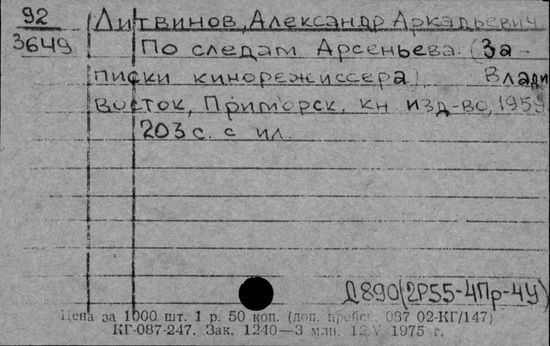 92
3649
Литвинов, Александр Аркадьевич.
По следам Арсеньева. (За-
писки кинорежиссера). Влади
восток, Приморск. кн изд-во, 1959
203 с. с ил.
Д890(2Р55-4Пр-4У)
Цена за 1000 шт. 1 р. 50 коп. (доп. прейск. 087 02-КГ/147)
КГ-087-247. Зак. 1240—3 млн. 12.V 1975 г.